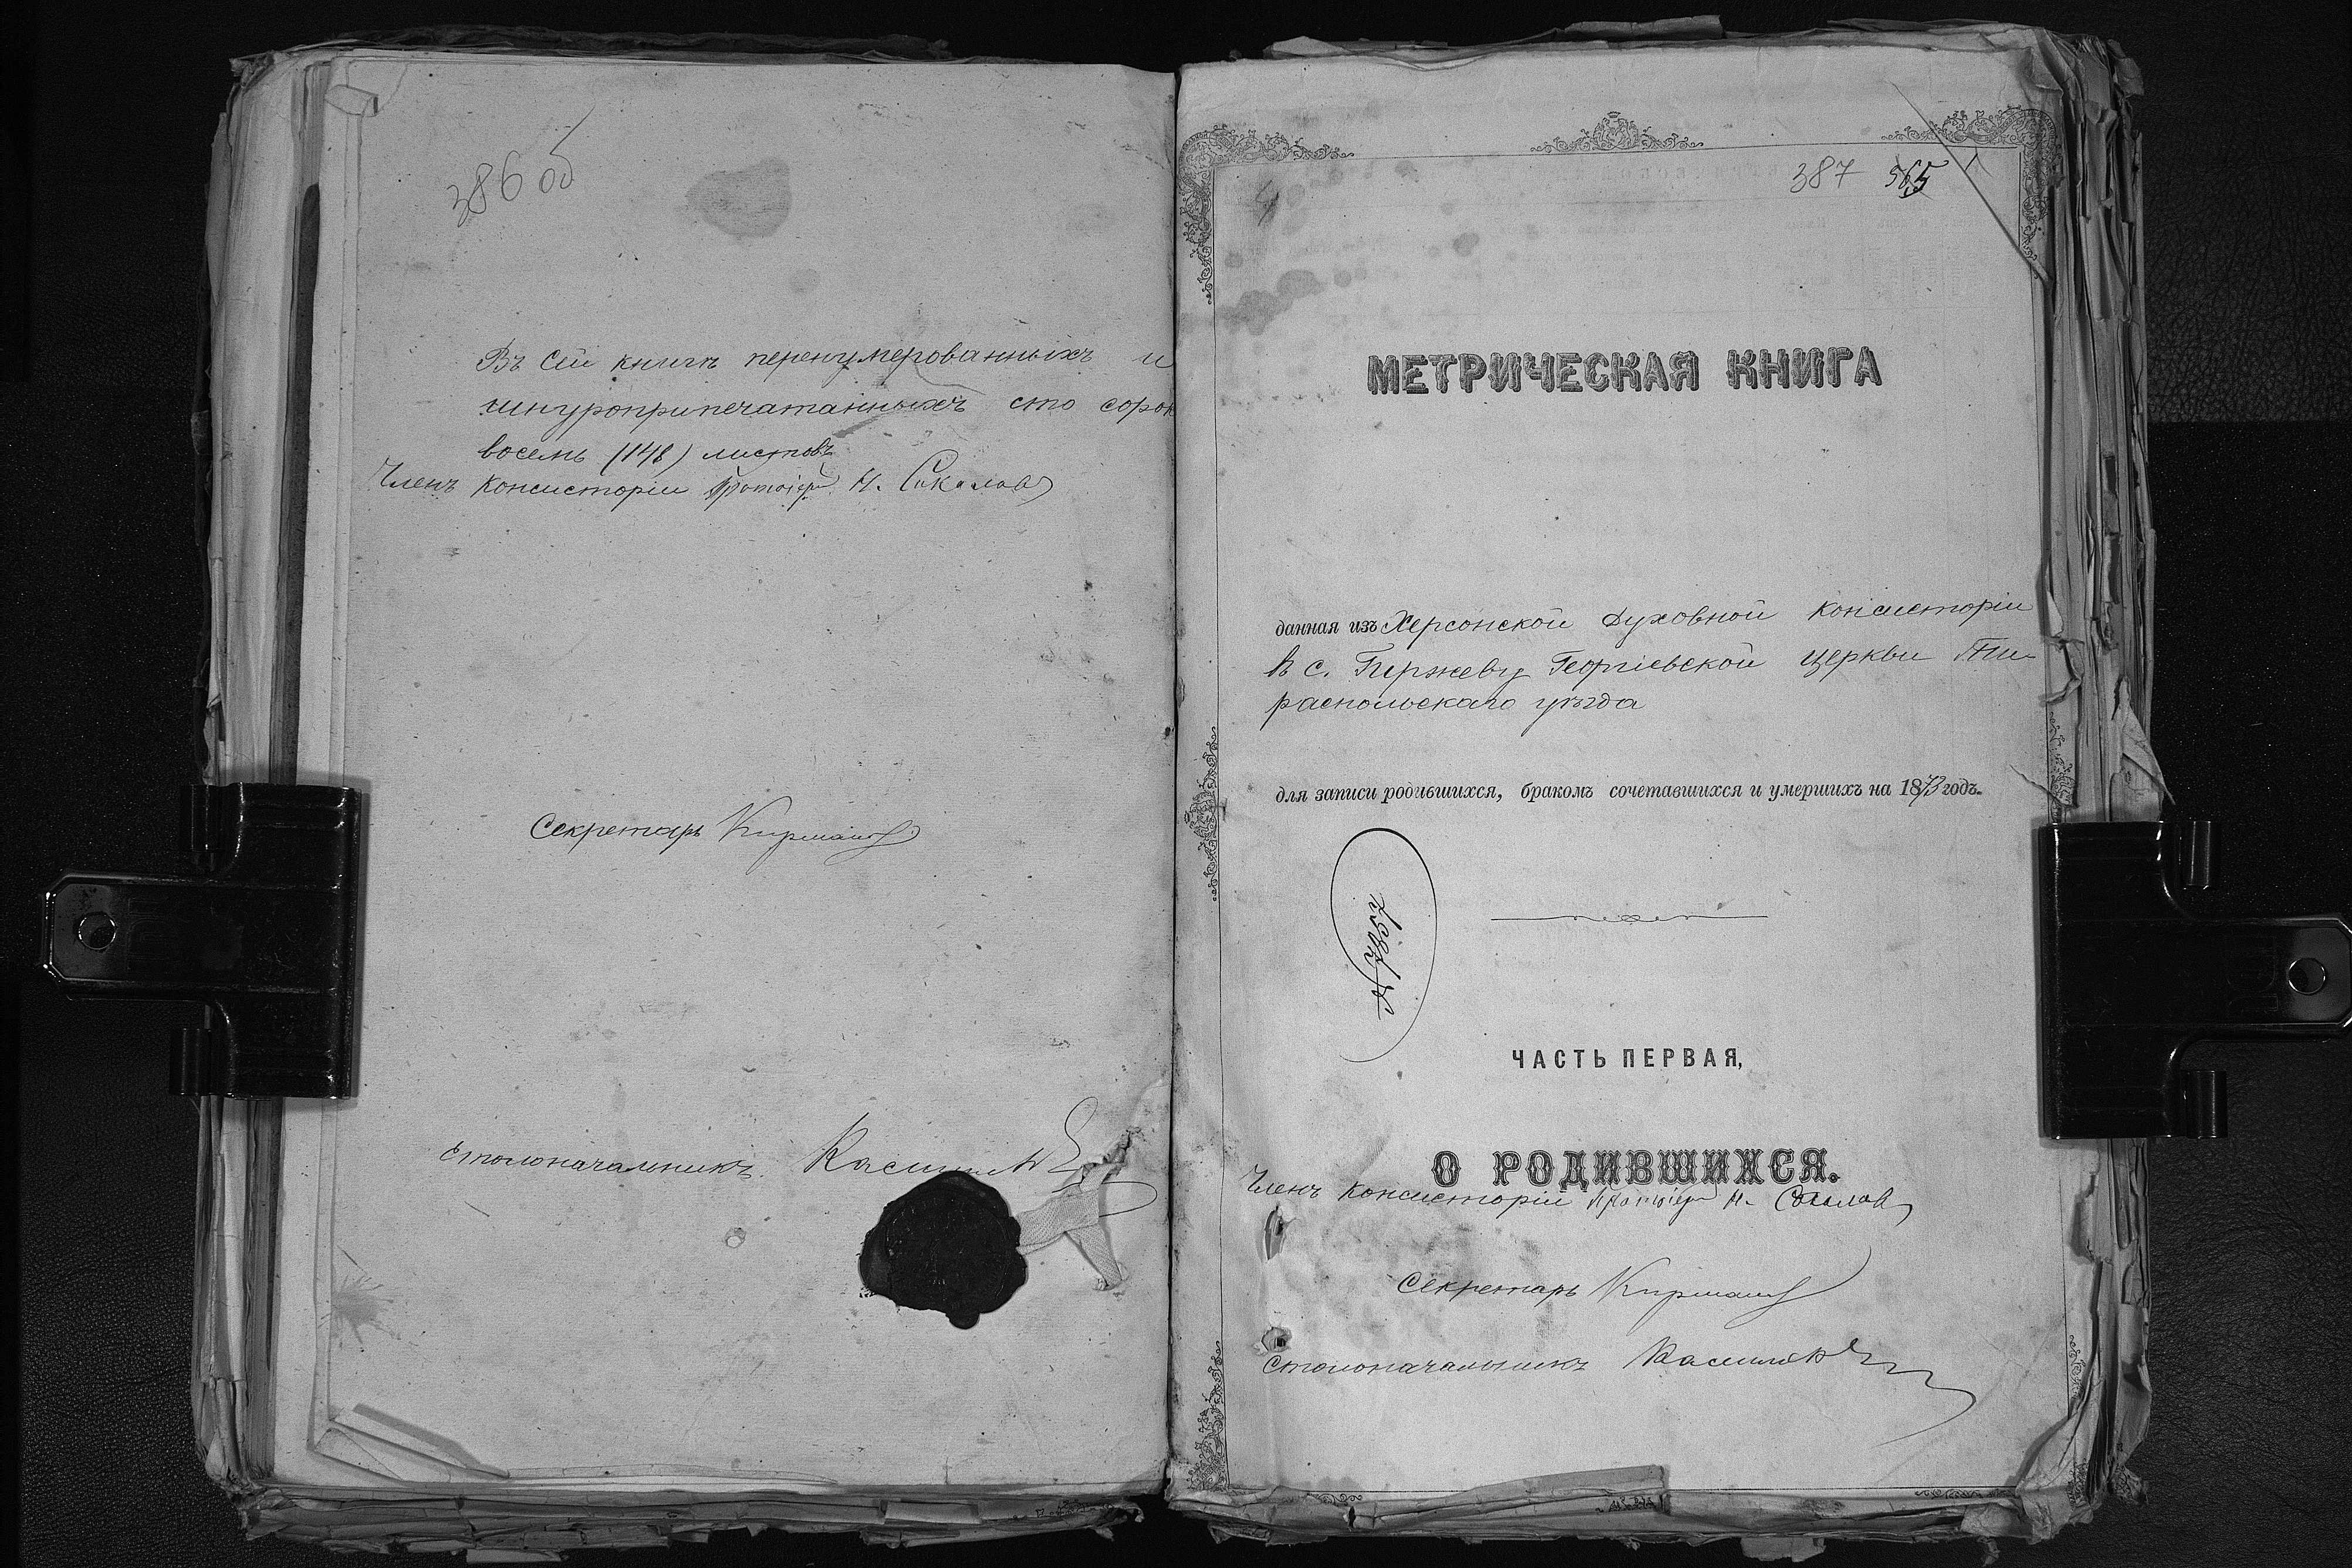 386 об
Въ сей книгѣ перенумерованныхъ и
шнуроприпечатанныхъ сто сорок
восемь (148) листовъ
Членъ Консисторіи Протоіерей Н. Соколовъ
Секретарь
Столоначальникъ
387 565 1
МЕТРИЧЕСКАЯ КНИГА
данная изъ Херсонской Духовной Консисторіи
въ с. Гержеву Георгіевской церкви Ти-
распольскаго уѣзда
для записи родившихся, бракомъ сочетавшихся и умершихъ на 1873 годъ.
№ 7857
ЧАСТЬ ПЕРВАЯ,
О РОДИВШИХСЯ.
Членъ Консисторіи Протоіерей Н. Соколовъ
Секретарь
Столоначальникъ